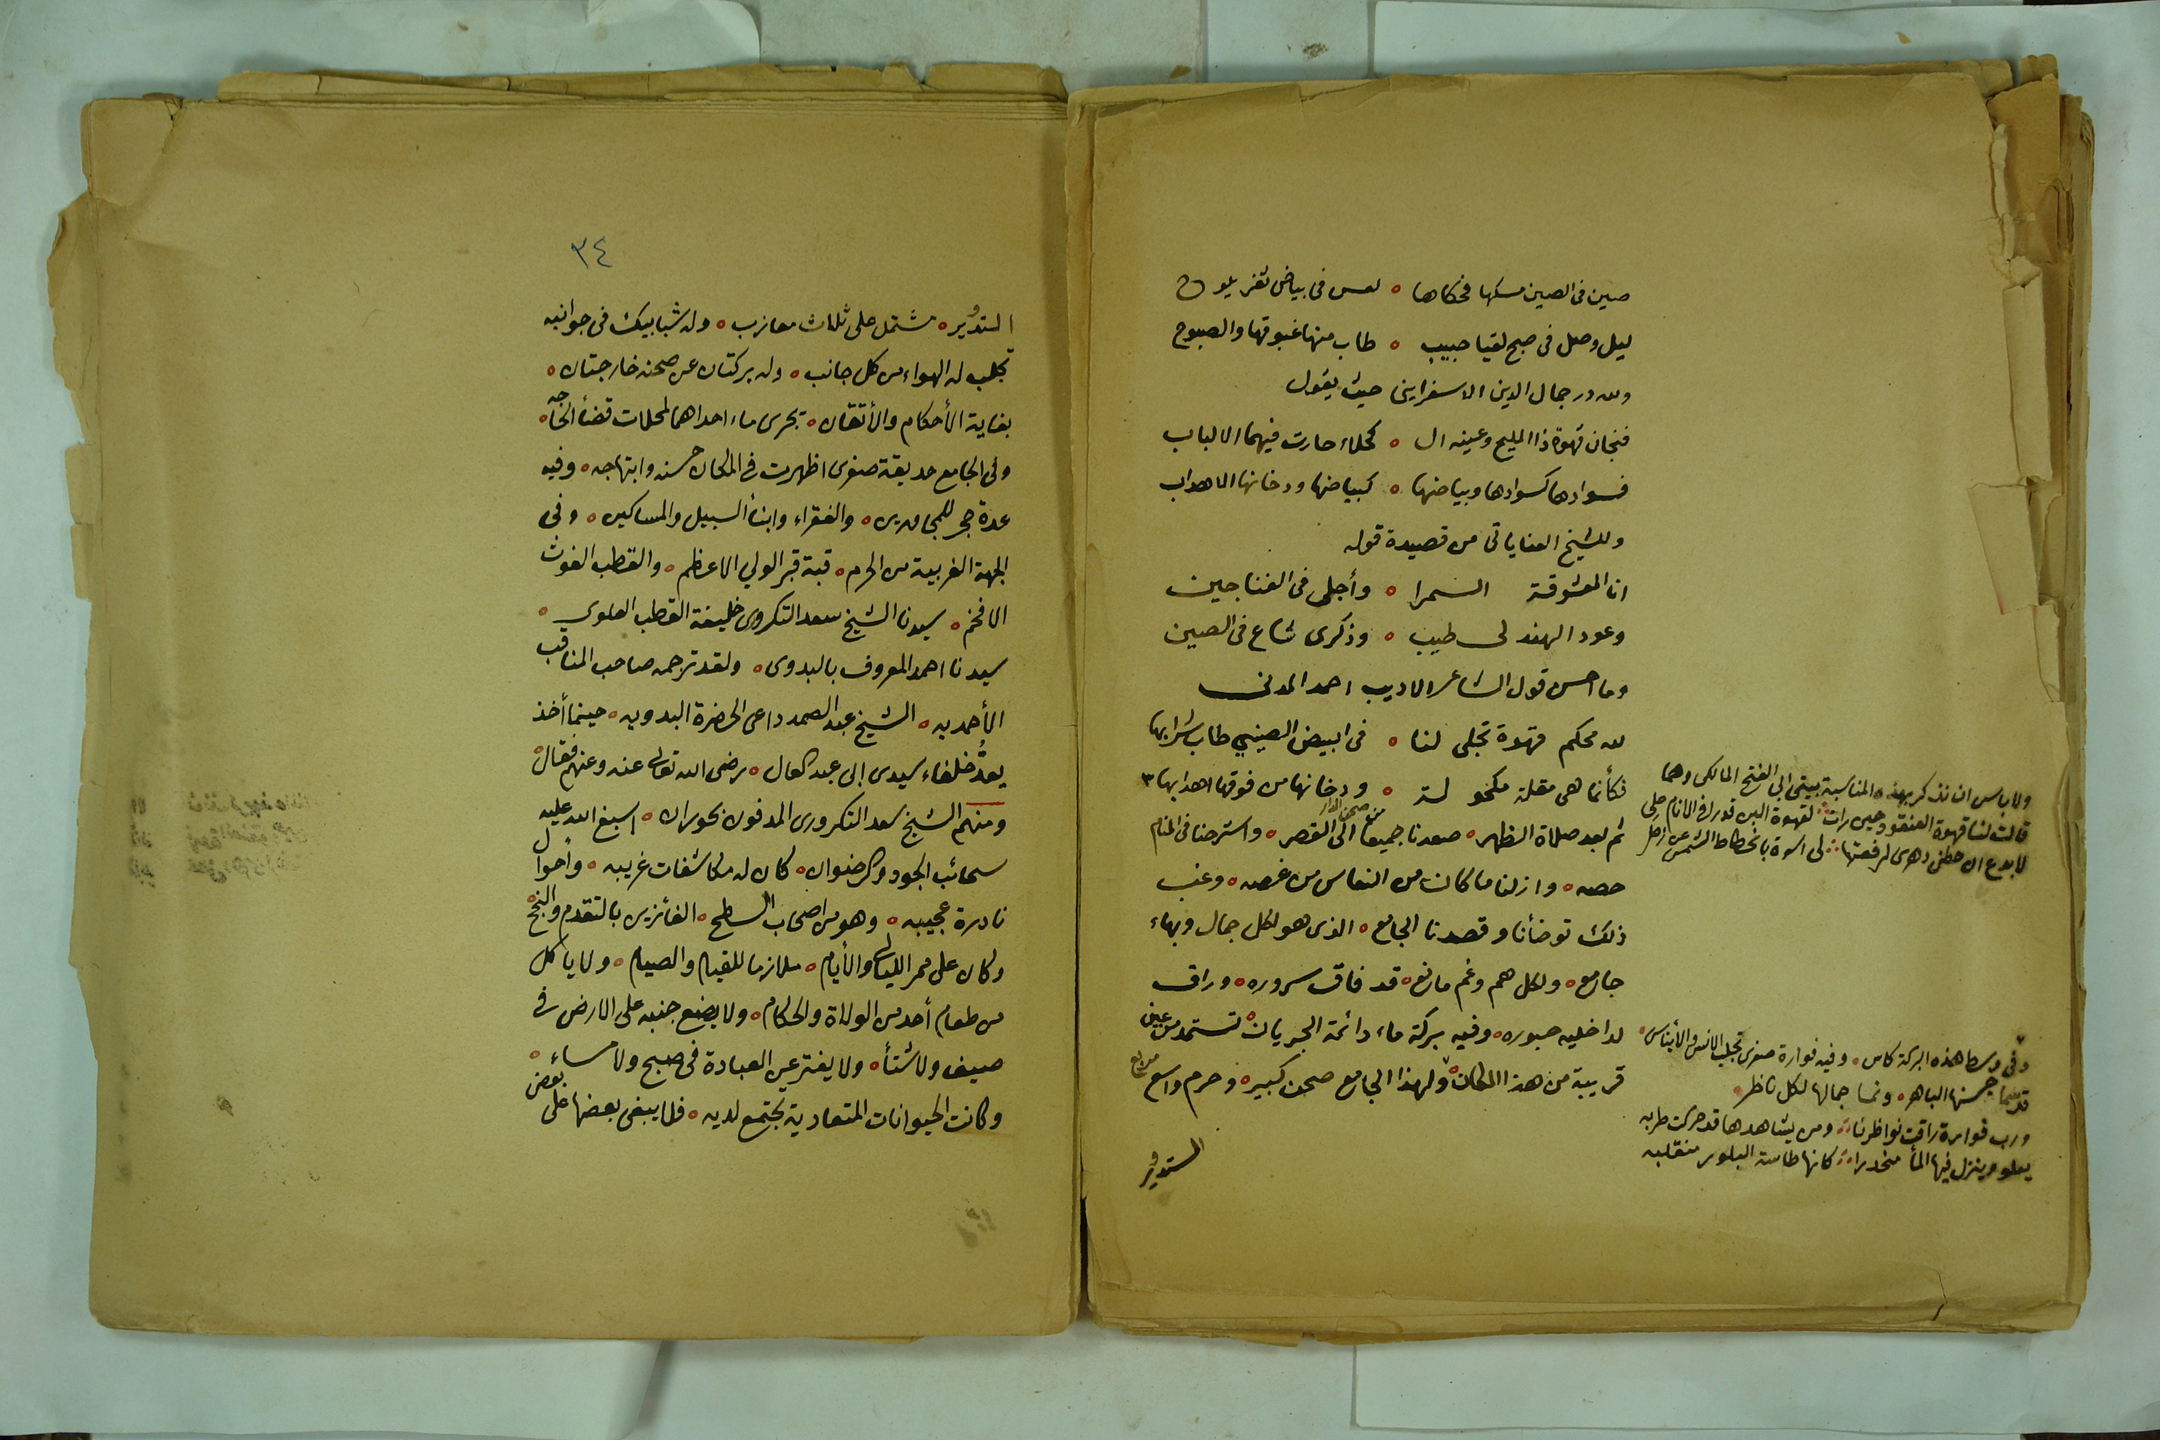 صين فى الصين مسكها فحكاها ٥ لعس فى بياض ثغر يلوح
ليل وصل فى صبح لقيا حبيب ٥ طاب منها غبوقها والصبوح
ولله در جمال الدين الاسفراينى حيث يقول
فنجان قهوة ذا المليح وعينه ال ٥ كحلاء حارت فيهما الالباب
فسوادها كسوادها وبياضها ٥ كبياضها ودخانها الاهداب
وللشيخ العناياتى من قصيدة قوله
انا المعشوقة السمرا ٥ وأجلى فى الفناجين
وعود الهند لى طيب ٥ وذكرى شاع فى الصين
وما احسن قول الشاعر الاديب احمد المدنى
لله محكم قهوة تجلى لنا ٥ فى ابيض الصينى طاب شرابها
فكأنما هى مقلة مكحولة ٥ ودخانها من فوقها اهدابها ٣
ثم بعد صلاة الظهر ٥ صعدنا جميعا من صحن الدار الى القصر ٥ واسترحنا فى المنام
حصه ٥ وازلنا ما كان من النعاس من غصه ٥ وغب
ذلك توضأنا وقصدنا الجامع ٥ الذى هو لكل جمال وبهاء
جامع ٥ ولكل هم وغم مانع ٥ قد فاق سروره ٥ وراق
لداخليه حبوره ٥ وفيه بركة ماء دائمة الجريان ٥ تستمد من عين
قريبة من هذا المكان ٧ ولهذا الجامع صحن كبير ٥ وحرم واسع مربع
المستدير
ولا باس ان نذكر بهذه المناسبة بيتى ابى الفتح المالكى وهما
قالت لنا قهوة العنقود حين رات لقهوة البن قدرا فى الانام على
لا بدع ان حطنى دهرى لرفعتها لى اسوة بانحطاط الشمس عن زحل
٧ وفى وسط هذه البركة كاس ٥ وفيه فوارة صغرى تجلب الانس والأيناس ٥
قد سما حسنها الباهر ٥ ونما جمالها لكل ناظر
ورب فوارة راقت نواظرنا ومن يشاهدها قد حركت طربه
يعلو وينزل فيها المأ منحدرا كانها طاسة البلور منقلبه
٣٤
التدوير ٥ مشتمل على ثلاث معازب ٥ وله شبابيك فى جوانبه
تجلب له الهواء من كل جانب ٥ وله بركتان عن صحنه خارجتان ٥
بغاية الأحكام والأتقان ٥ تجرى ماء احداهما لمحلات قضأ الحاجه ٥
وفى الجامع حديقة صغرى اظهرت فى المكان حسنه وابتهاجه ٥ وفيه
عدة حجر للمجاورين ٥ والفقراء وابنأ السبيل والمساكين ٥ وفى
الجهة الغربية من الحرم ٥ قبة قبر الولي الاعظم ٥ والقطب الغوث
الافخم ٥ سيدنا الشيخ سعد التكرورى خليفة القطب العلوى ٥
سيدنا احمد المعروف بالبدوى ٥ ولقد ترجمه صاحب المناقب
الأحمديه ٥ الشيخ عبد الصمد داعى الحضرة البدويه ٥ حينما أخذ
يعدُّ خلفاء سيدى إلى عبد العال ٥ رضى الله تعالى عنه وعنهم فقال ٥
ومنهم الشيخ سعد التكرورى المدفون بحوران ٥ اسبغ الله عليه
سحائب الجود والرضوان ٥ كان له مكاشفات غريبه ٥ وأحوال
نادرة عجيبه ٥ وهو من اصحاب السطح ٥ الفائزين بالتقدم والنجح ٥
وكان على ممر الليالى والأيام ٥ ملازما للقيام والصيام ٥ ولا ياكل
من طعام أحد من الولاة والحكام ٥ ولا يضع جنبه على الارض فى
صيف ولا شتأ ٥ ولا يفتر عن العبادة فى صبح ولا مساء ٥
وكانت الحيوانات المتعادية تجتمع لديه ٥ فلا يبغى بعضها على بعض